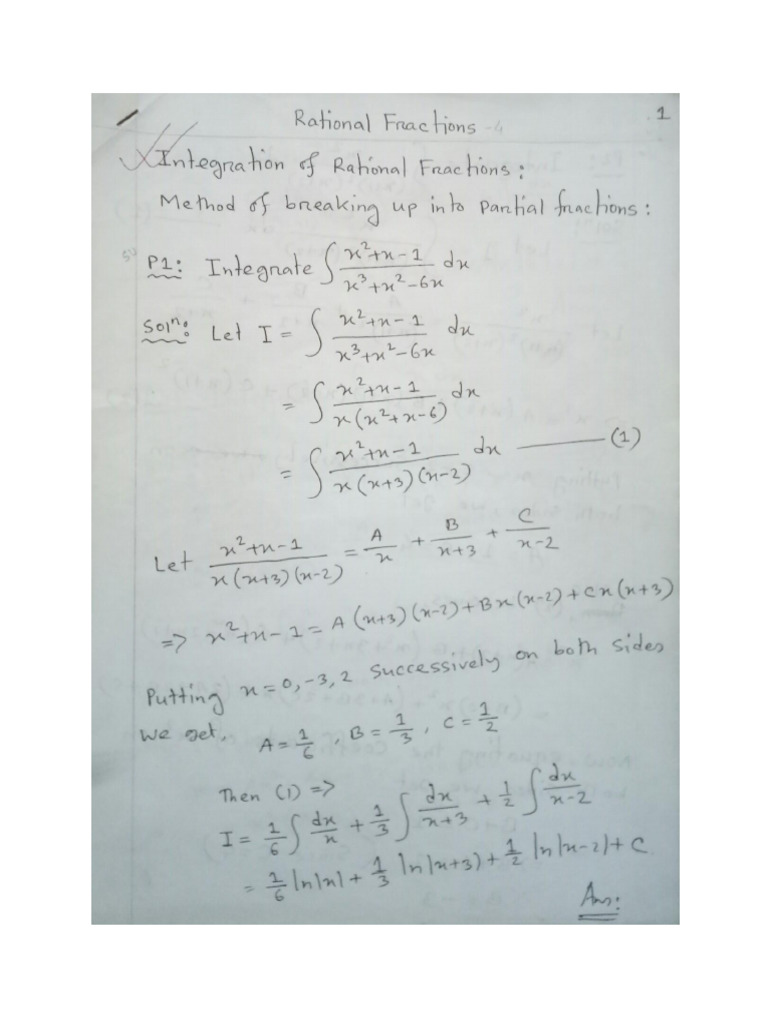 Rational Fractions -4
1
Integration of Rational Fractions:
Method of breaking up into Partial fractions:
P1: Integrate ∫ (x²+x-1)/(x³+x²-6x) dx
Solⁿ: Let I = ∫ (x²+x-1)/(x³+x²-6x) dx
= ∫ (x²+x-1)/(x(x²+x-6)) dx
= ∫ (x²+x-1)/(x(x+3)(x-2)) dx ——— (1)
Let (x²+x-1)/(x(x+3)(x-2)) = A/x + B/(x+3) + C/(x-2)
=> x²+x-1 = A(x+3)(x-2)+Bx(x-2)+Cx(x+3)
Putting x=0,-3,2 successively on both sides
we get, A=1/6, B=1/3, C=1/2
Then (1) =>
I = 1/6 ∫ dx/x + 1/3 ∫ dx/(x+3) + 1/2 ∫ dx/(x-2)
= 1/6 ln|x| + 1/3 ln|x+3) + 1/2 ln|x-2|+C
Ans: